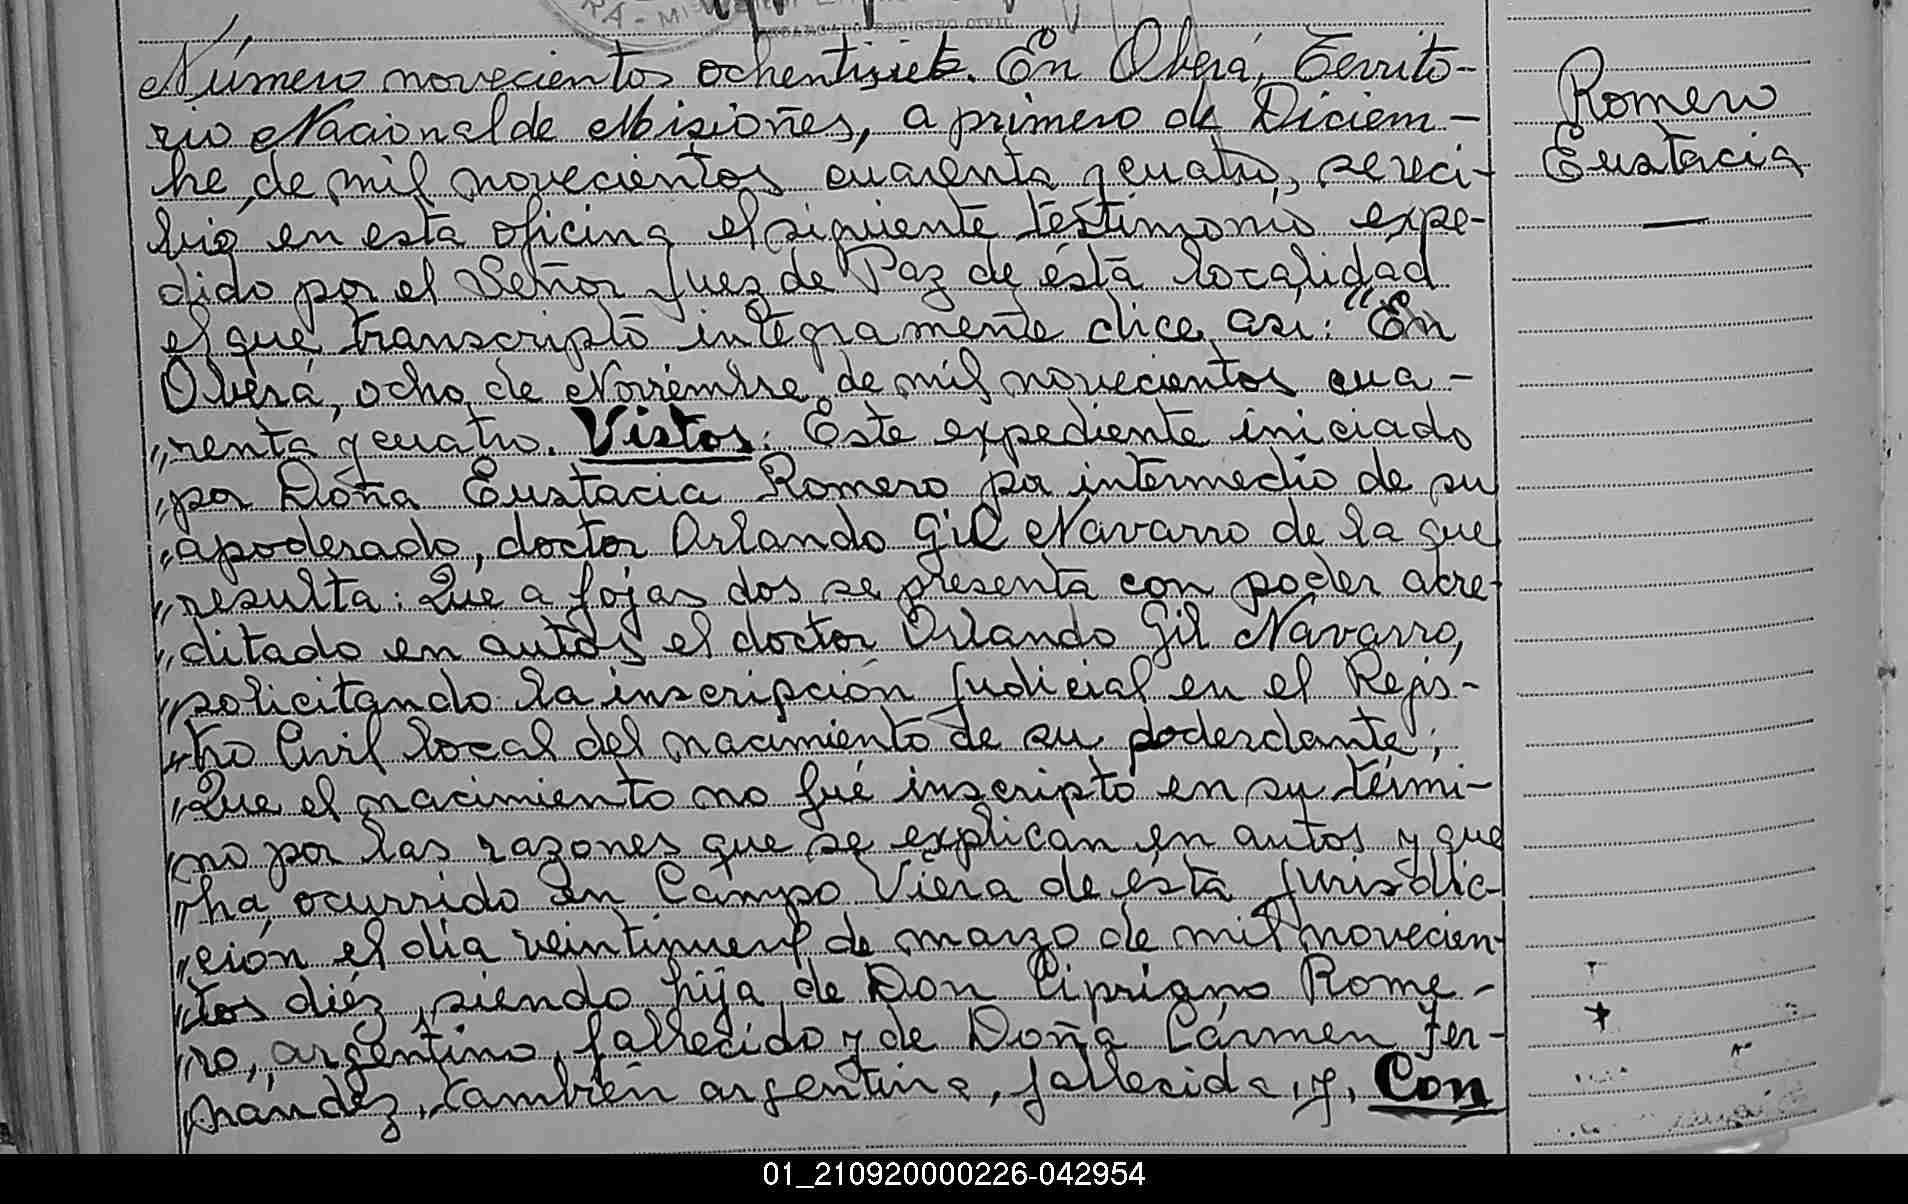 RA - MI
ENCARGADO REGISTRO CIVIL
Número novecientos ochentisiete. En Oberá, Territo-
rio Nacional de Misiones, a primero de Diciem-
bre de mil novecientos cuarenta y cuatro, se reci-
bió en esta oficina el siguiente testimonio expe-
dido por el Señor Juez de Paz de ésta localidad
el que transcripto íntegramente dice así: "En
Oberá, ocho de Noviembre de mil novecientos cua-
"renta y cuatro. Vistos: Este expediente iniciado
"por Doña Eustacia Romero por intermedio de su
"apoderado, doctor Orlando Gil Navarro de la que
"resulta: Que a fojas dos se presenta con poder acre-
"ditado en autos el doctor Orlando Gil Navarro,
"solicitando la inscripción judicial en el Regis-
"tro Civil local del nacimiento de su poderdante;
"Que el nacimiento no fué inscripto en su térmi-
"no por las razones que se explican en autos y que
"ha ocurrido en Campo Viera de ésta jurisdic-
"ción el día veintinueve de marzo de mil novecien-
"tos diéz, siendo hija de Don Cipriano Rome-
"ro, argentino, fallecido y de Doña Cármen Fer-
"nández, también argentina, fallecida, y, Con
Romero
Eustacia
01_210920000226-042954